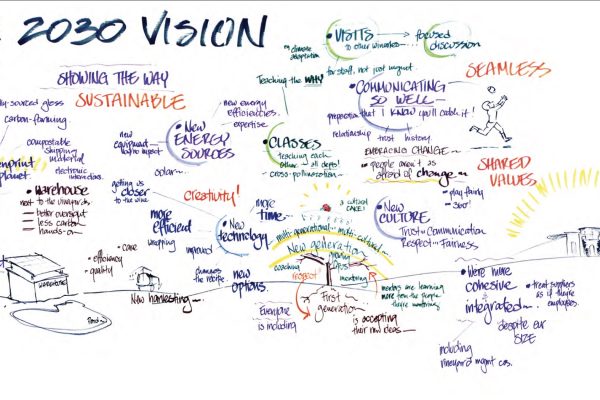 2030 VISION
• VISITS
to other wineries → focused
discussion
• climate
adaptation
for staff, not just urgent
SHOWING THE WAY
Teaching the WHY
SEAMLESS
SUSTAINABLE
• COMMUNICATING
SO WELL~
preposition that I KNOW you'll catch it!
relationship
trust history
EMBRACING CHANGE~
• people aren't as
afraid of change~
carbon-farming
compostable
shipping
material
electronic
interactions.
planet
new energy
efficiencies~
expertise~
new
equipment
• New
ENERGY
SOURCES
solar~
• CLASSES
teaching each
other~ all depts!
cross-pollination~
SHARED
VALUES
• play fairly
360°!
• warehouse
next to the vineyards
— better oversight
— less carbon
— hands-on
getting us
closer
to the wine
Creativity!
a cultural
CAKE!
• New
CULTURE
Trust~Communication
Respect~Fairness
more
efficient
wrapping
improved
• New
technology
more
time~
multi-generational~multi-cultural~
New generation
coaching
RESPECT
mentoring
• efficiency
• quality
• care
changes
the recipe
new
options.
mentors are learning
more from the people
they're mentoring
WAREHOUSE
Pond
New harvesting~
First
generation~
is accepting
their new ideas~
Everyone
is including
• We're more
cohesive
&
integrated~
despite our
SIZE
• treat suppliers
as if they're
employees.
including
vineyard mgmt cos.